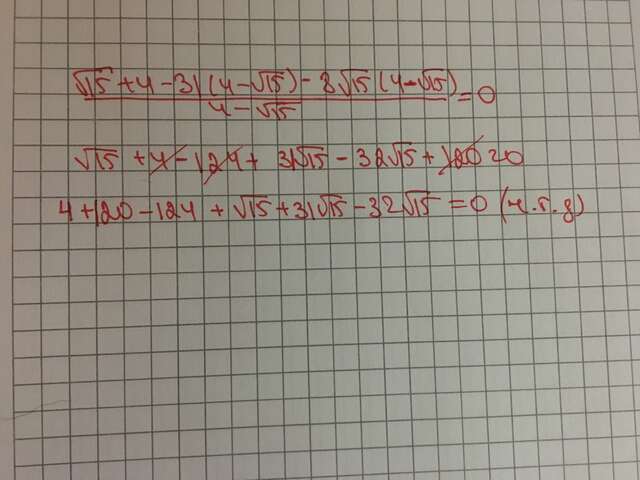 (√15 + 4 - 31(4-√15) - 8√15(4-√15))/(4-√15) = 0
√15 + 4 - 124 + 31√15 - 32√15 + 120 = 0
4 + 120 - 124 + √15 + 31√15 - 32√15 = 0 (ч.т.д)